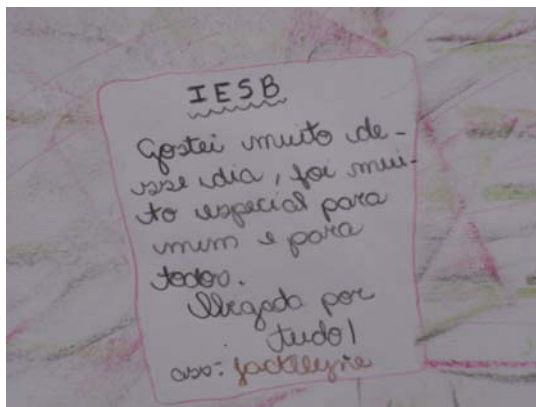 IESB
Gostei muito de-
sse dia, foi mui-
to especial para
mim e para
todos.
Obrigada por
tudo!
ass: Jackllyne